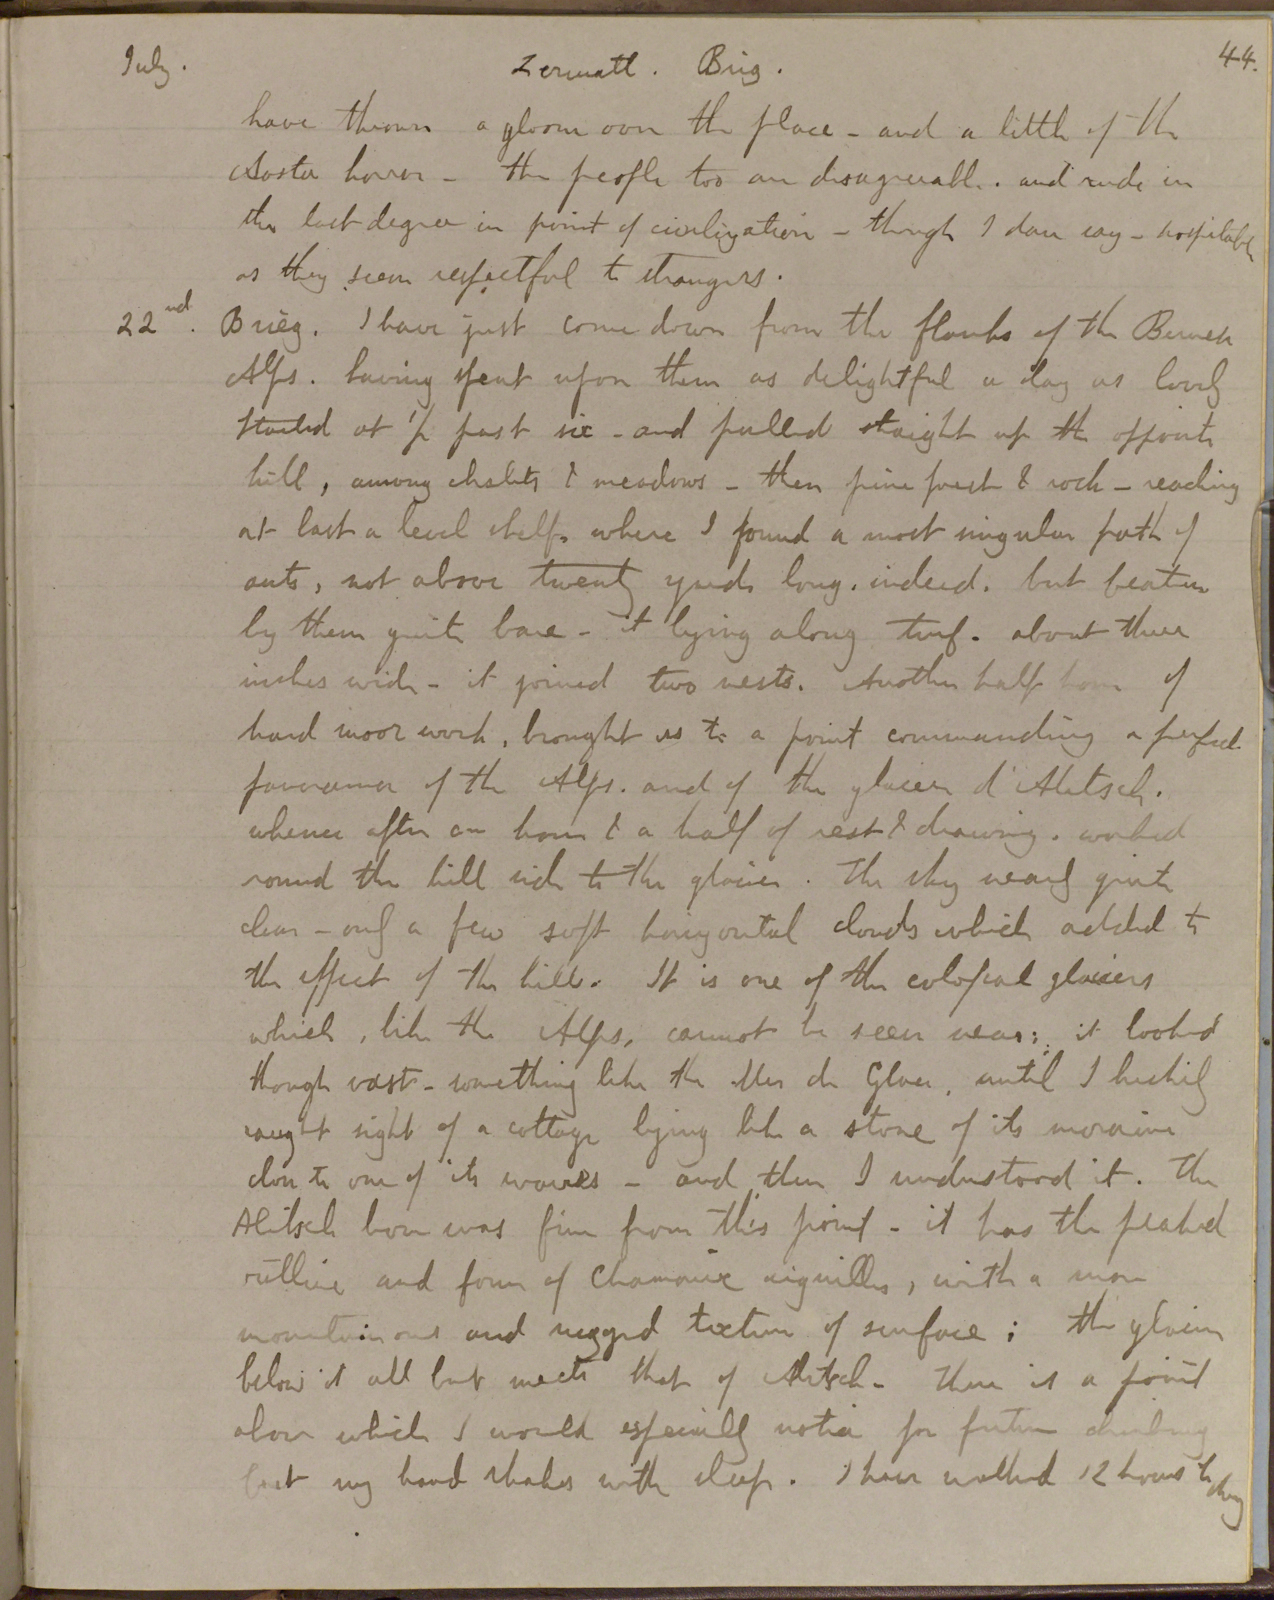 July.
Zermatt. Brieg.
44.
have thrown a gloom over the place - and a little of the
Aosta horror - the people too are disagreeable. and rude in
the last degree in point of civilization - though I dare say - hospitable
as they seem respectful to strangers.
22nd. Brieg. I have just come down from the flanks of the Bernese
Alps. having spent upon them as delightful a day as lovely
started at 1/2 past six - and pulled straight up the opposite
hill, among chalets & meadows - then pine forest & rock - reaching
at last a level shelf. where I found a most singular path of
ants, not above twenty yards long. indeed. but beaten
by them quite bare - it lying along turf. about three
inches wide - it joined two nests. Another half hour of
hard moor work, brought us to a point commanding a perfect
panorama of the Alps. and of the glacier d'Aletsch.
whence after an hour & a half of rest & drawing. worked
round the hill side to the glacier. The sky nearly quite
clear - only a few soft horizontal clouds which added to
the effect of the hills. It is one of the colossal glaciers
which, like the Alps, cannot be seen near: it looked
though vast - something like the Mer de Glace, until I luckily
caught sight of a cottage lying like a stone of its moraine
close to one of its waves - and then I understood it. The
Aletsch horn was fine from this point - it has the peaked
outline and form of Chamonix aiguilles, with a more
mountainous and rugged texture of surface; the glacier
below it all but meets that of Aletsch - There is a point
above which I would especially notice for future climbing
but my hand shakes with sleep. I have walked 12 hours to day